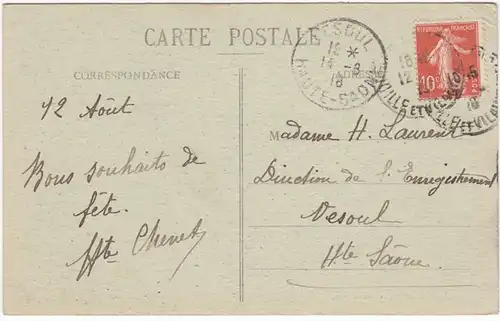 CARTE POSTALE
CORRESPONDANCE
ADRESSE
VESOUL
18 *
14 -8
18
HAUTE-SAONE
REPUBLIQUE FRANÇAISE
10c
POSTES
12 Août
Bons souhaits de
fête.
Chenet
Madame H. Laurent
Direction de l'Enregistrement
Vesoul
Hte Saône